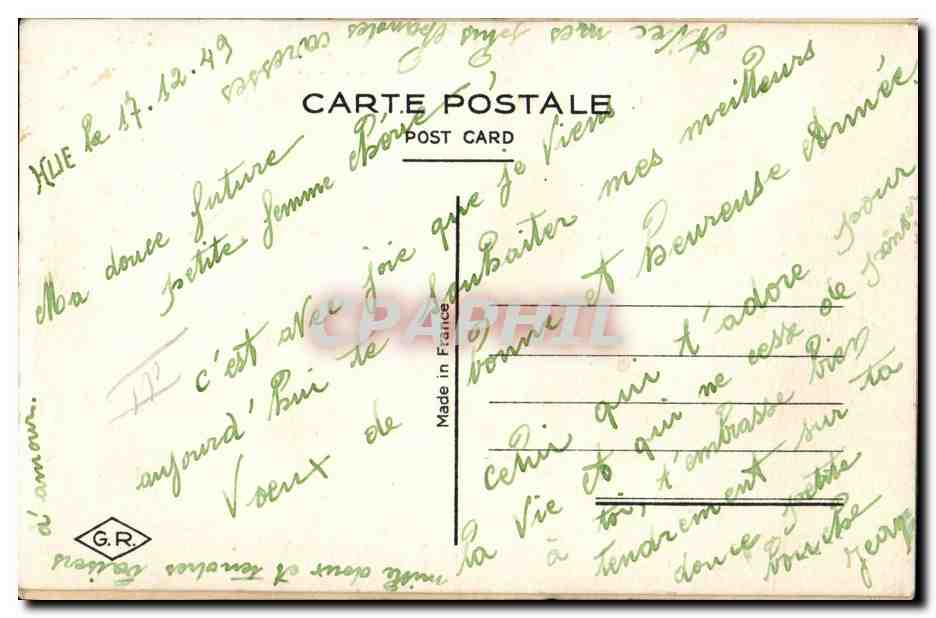 Avec mes plus chandes caresses
HUE le 17.12.49
CARTE POSTALE
POST CARD
Ma douce future
petite femme chérie
c'est avec joie que je viens
aujourd'hui te souhaiter mes meilleurs
Voeux de bonne et heureuse Année
celui qui t'adore pour
la vie et qui ne cesse de penser
à toi, t'embrasse bien
tendrement sur ta
douce petite
bouche
Jean
mille doux et tendres baisers
d'amour.
Made in France
G.R.
CPAPHIL